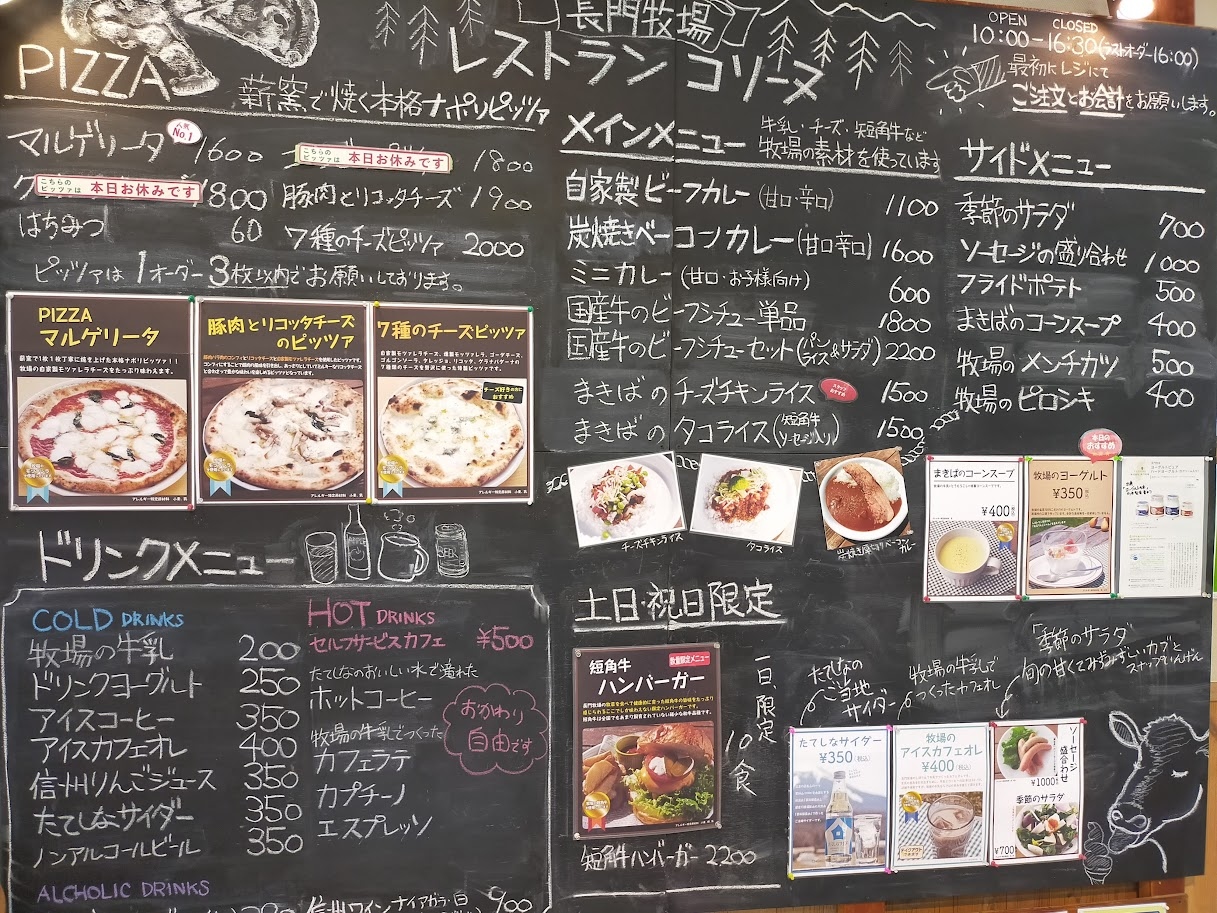 長門牧場
レストラン コリーヌ
OPEN CLOSED
10:00-16:30(ラストオーダー16:00)
最初にレジにて
ご注文とお会計をお願いします。
PIZZA
薪窯で焼く本格ナポリピッツァ
マルゲリータ 人気No.1 1600
こちらのピッツァは 本日お休みです 1800
こちらのピッツァは 本日お休みです 1800
豚肉とリコッタチーズ 1900
はちみつ 60
7種のチーズピッツァ 2000
ピッツァは1オーダー3枚以内でお願いしております。
PIZZA
マルゲリータ
薪窯で1枚1枚丁寧に焼き上げた本格ナポリピッツァ!!
牧場の自家製モッツァレラチーズをたっぷり味わえます。
豚肉とリコッタチーズ
のピッツァ
7種のチーズピッツァ
チーズ好きの方に
おすすめ
メインメニュー
牛乳・チーズ・短角牛など
牧場の素材を使っています
自家製ビーフカレー(甘口・辛口) 1100
炭焼きベーコンカレー(甘口辛口) 1600
ミニカレー(甘口・お子様向け) 600
国産牛のビーフシチュー単品 1800
国産牛のビーフシチューセット(パンorライス&サラダ) 2200
まきばのチーズチキンライス スタッフおすすめ 1500
まきばのタコライス(短角牛ソーセージ入り) 1500
チーズチキンライス
タコライス
炭焼き厚切りベーコン
カレー
サイドメニュー
季節のサラダ 700
ソーセージの盛り合わせ 1000
フライドポテト 500
まきばのコーンスープ 400
牧場のメンチカツ 500
牧場のピロシキ 400
まきばのコーンスープ
¥400
本日の
おすすめ
牧場のヨーグルト
¥350
ドリンクメニュー
BEER
COLD DRINKS
牧場の牛乳 200
ドリンクヨーグルト 250
アイスコーヒー 350
アイスカフェオレ 400
信州りんごジュース 350
たてしなサイダー 350
ノンアルコールビール 350
HOT DRINKS
セルフサービスカフェ ¥500
たてしなのおいしい水で淹れた
ホットコーヒー
牧場の牛乳でつくった
カフェラテ
カプチーノ
エスプレッソ
おかわり
自由です
ALCHOLIC DRINKS
信州ワイン ナイアガラ・白 900
土日・祝日限定
短角牛
ハンバーガー
数量限定メニュー
一日限定
10食
短角牛ハンバーガー 2200
たてしなの
ご当地
サイダー
牧場の牛乳で
つくったカフェオレ
「季節のサラダ」
旬の甘くてみずみずしいカブと
スナップいんげん
たてしなサイダー
¥350(税込)
牧場の
アイスカフェオレ
¥400(税込)
テイクアウト
できます
ソーセージ
盛合わせ
¥1000
季節のサラダ
¥700